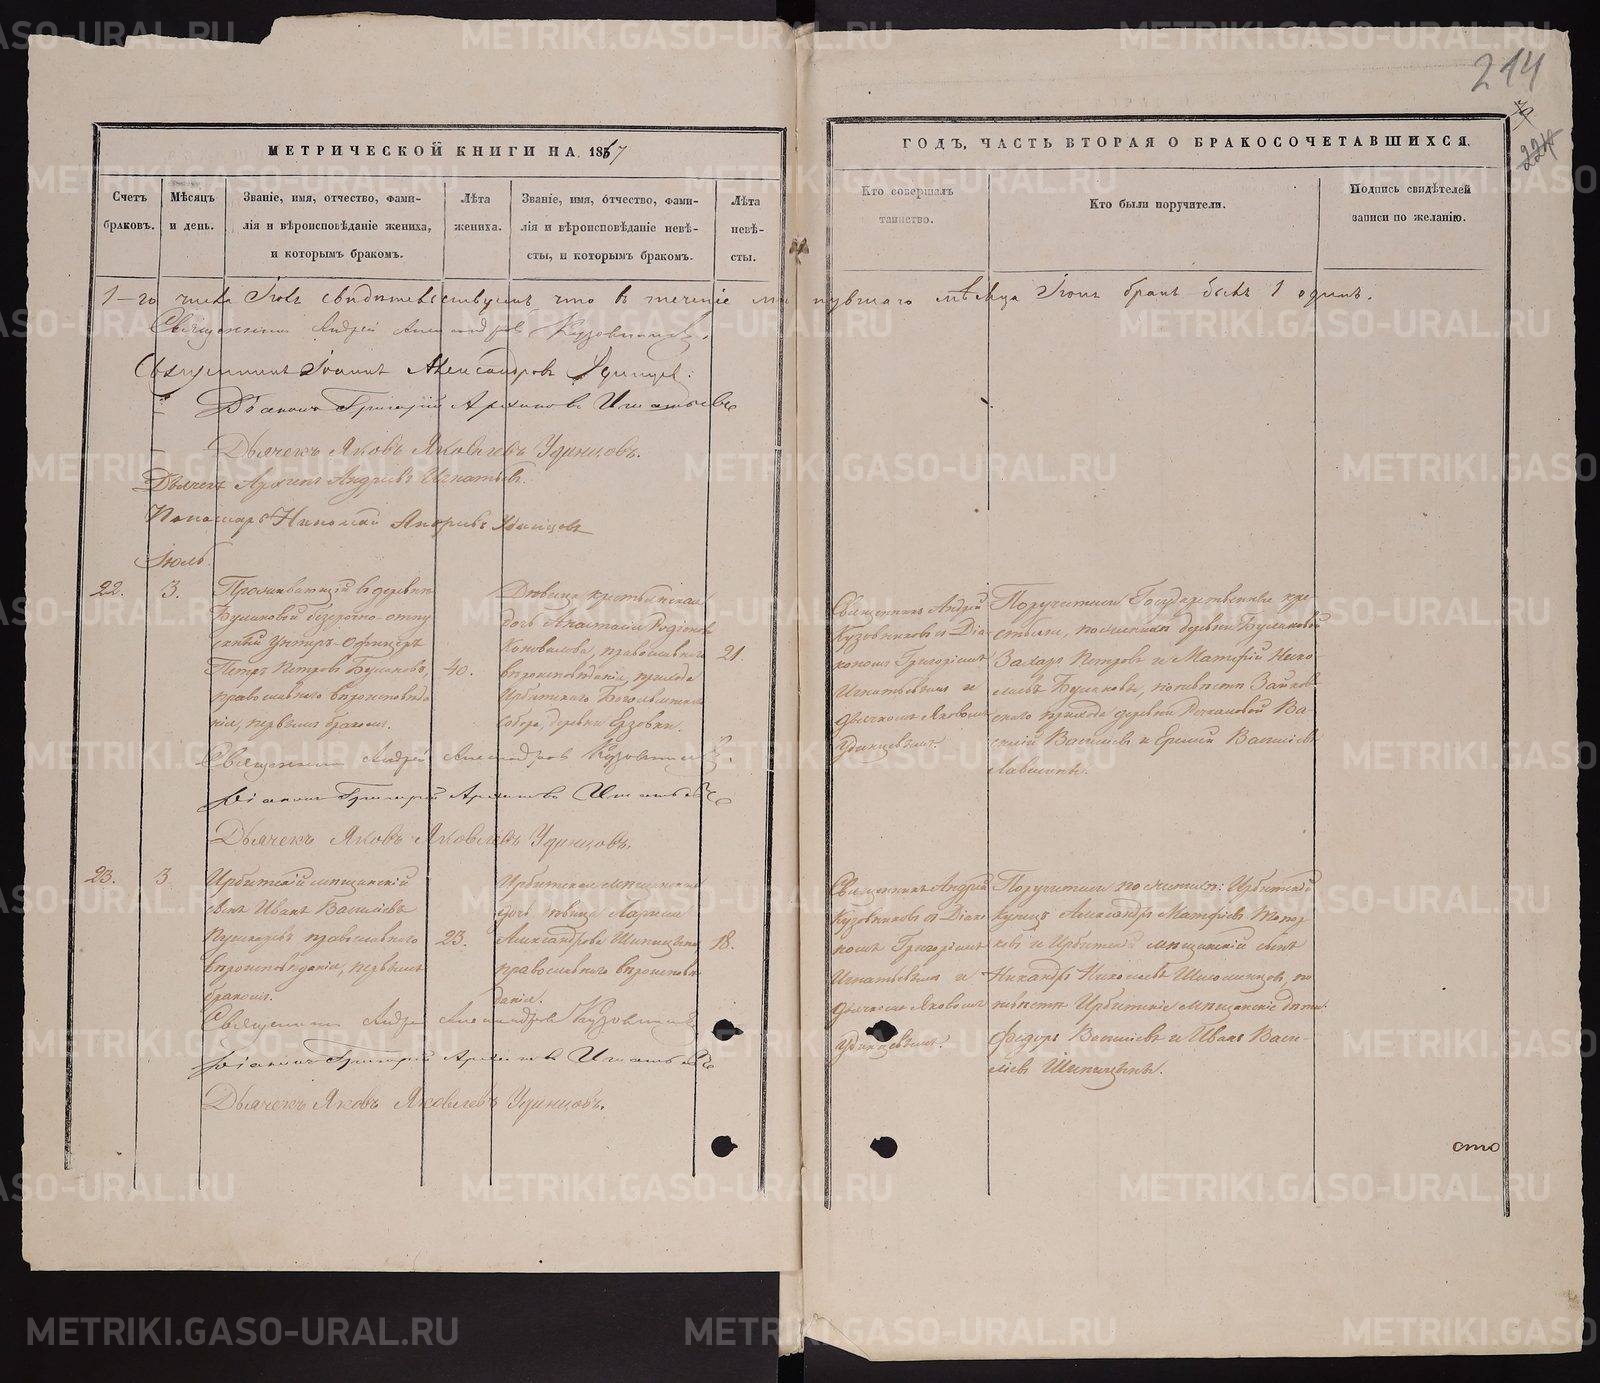 214
224
МЕТРИЧЕСКОЙ КНИГИ НА 1867
ГОДЪ, ЧАСТЬ ВТОРАЯ О БРАКОСОЧЕТАВШИХСЯ.
Счетъ браковъ.
Мѣсяцъ и день.
Званіе, имя, отчество, фами-
лія и вѣроисповѣданіе жениха,
и которымъ бракомъ.
Лѣта
жениха.
Званіе, имя, отчество, фами-
лія и вѣроисповѣданіе невѣ-
сты, и которымъ бракомъ.
Лѣта
невѣ-
сты.
Кто совершалъ
таинство.
Кто были поручители.
Подпись свидѣтелей
записи по желанію.
1-го числа свидѣтельствуемъ что въ теченіе минувшаго мѣсяца Іюня бракъ былъ 1 одинъ.
Священникъ Андрей Александровъ Кузовниковъ.
Священникъ Іоаннъ Александровъ Удинцевъ.
Діаконъ Григорій Архиповъ Игнатьевъ
Дьячекъ Яковъ Яковлевъ Удинцовъ.
Дьячекъ Архипъ Андреевъ Игнатьевъ.
Пономарь Николай Удинцовъ
Іюль
22.
3.
Проживающій въ деревнѣ
Булановой безсрочно-отпу
скной Унтеръ-Офицеръ
Петръ Петровъ Булановъ,
православнаго вѣроисповѣда
нія, первымъ бракомъ.
40.
Дѣвица крестьянская
дочь Анастасія Родіонова
Коновалова, православнаго
вѣроисповѣданія, прихода
Ирбитскаго Богоявленск
собора, деревни Ерзовки.
21.
Священникъ Андрей
Кузовниковъ съ Діа-
кономъ Григоріемъ
Игнатьевымъ и
дьячкомъ Яковомъ
Удинцевымъ.
Поручители Государственные кре-
стьяне, по женихѣ деревни Булановой
Захаръ Петровъ и Матфей Нико-
лаевъ Булановы, по невѣстѣ Зайков
скаго прихода деревни Речкаловой Ва
силій Васильевъ и Еремѣй Васильевъ
Священникъ Андрей Александровъ Кузовниковъ.
Діаконъ Григорій Архиповъ Игнатьевъ
Дьячекъ Яковъ Яковлевъ Удинцовъ.
23.
3.
Ирбитскій мѣщанскій
сынъ Иванъ Васильевъ
Пушкаревъ православнаго
вѣроисповѣданія, первымъ
бракомъ.
23.
Ирбитская мѣщанская
дочь дѣвица Лариса
Александрова Шипицына
православнаго вѣроисповѣ
данія.
18.
Священникъ Андрей
Кузовниковъ съ Діако
номъ Григоріемъ
Игнатьевымъ и
дьячкомъ Яковомъ
Удинцевымъ.
Поручители по женихѣ: Ирбитскій
купецъ Александръ Матфеевъ
и Ирбитскій мѣщанскій сынъ
Никандръ Николаевъ по
невѣстѣ Ирбитскіе мѣщанскіе дѣти
Федоръ Васильевъ и Иванъ Васи-
льевъ Шипицыны.
Священникъ Андрей Александровъ Кузовниковъ
Діаконъ Григорій Архиповъ Игнатьевъ
Дьячекъ Яковъ Яковлевъ Удинцовъ.
сто
METRIKI.GASO-URAL.RU